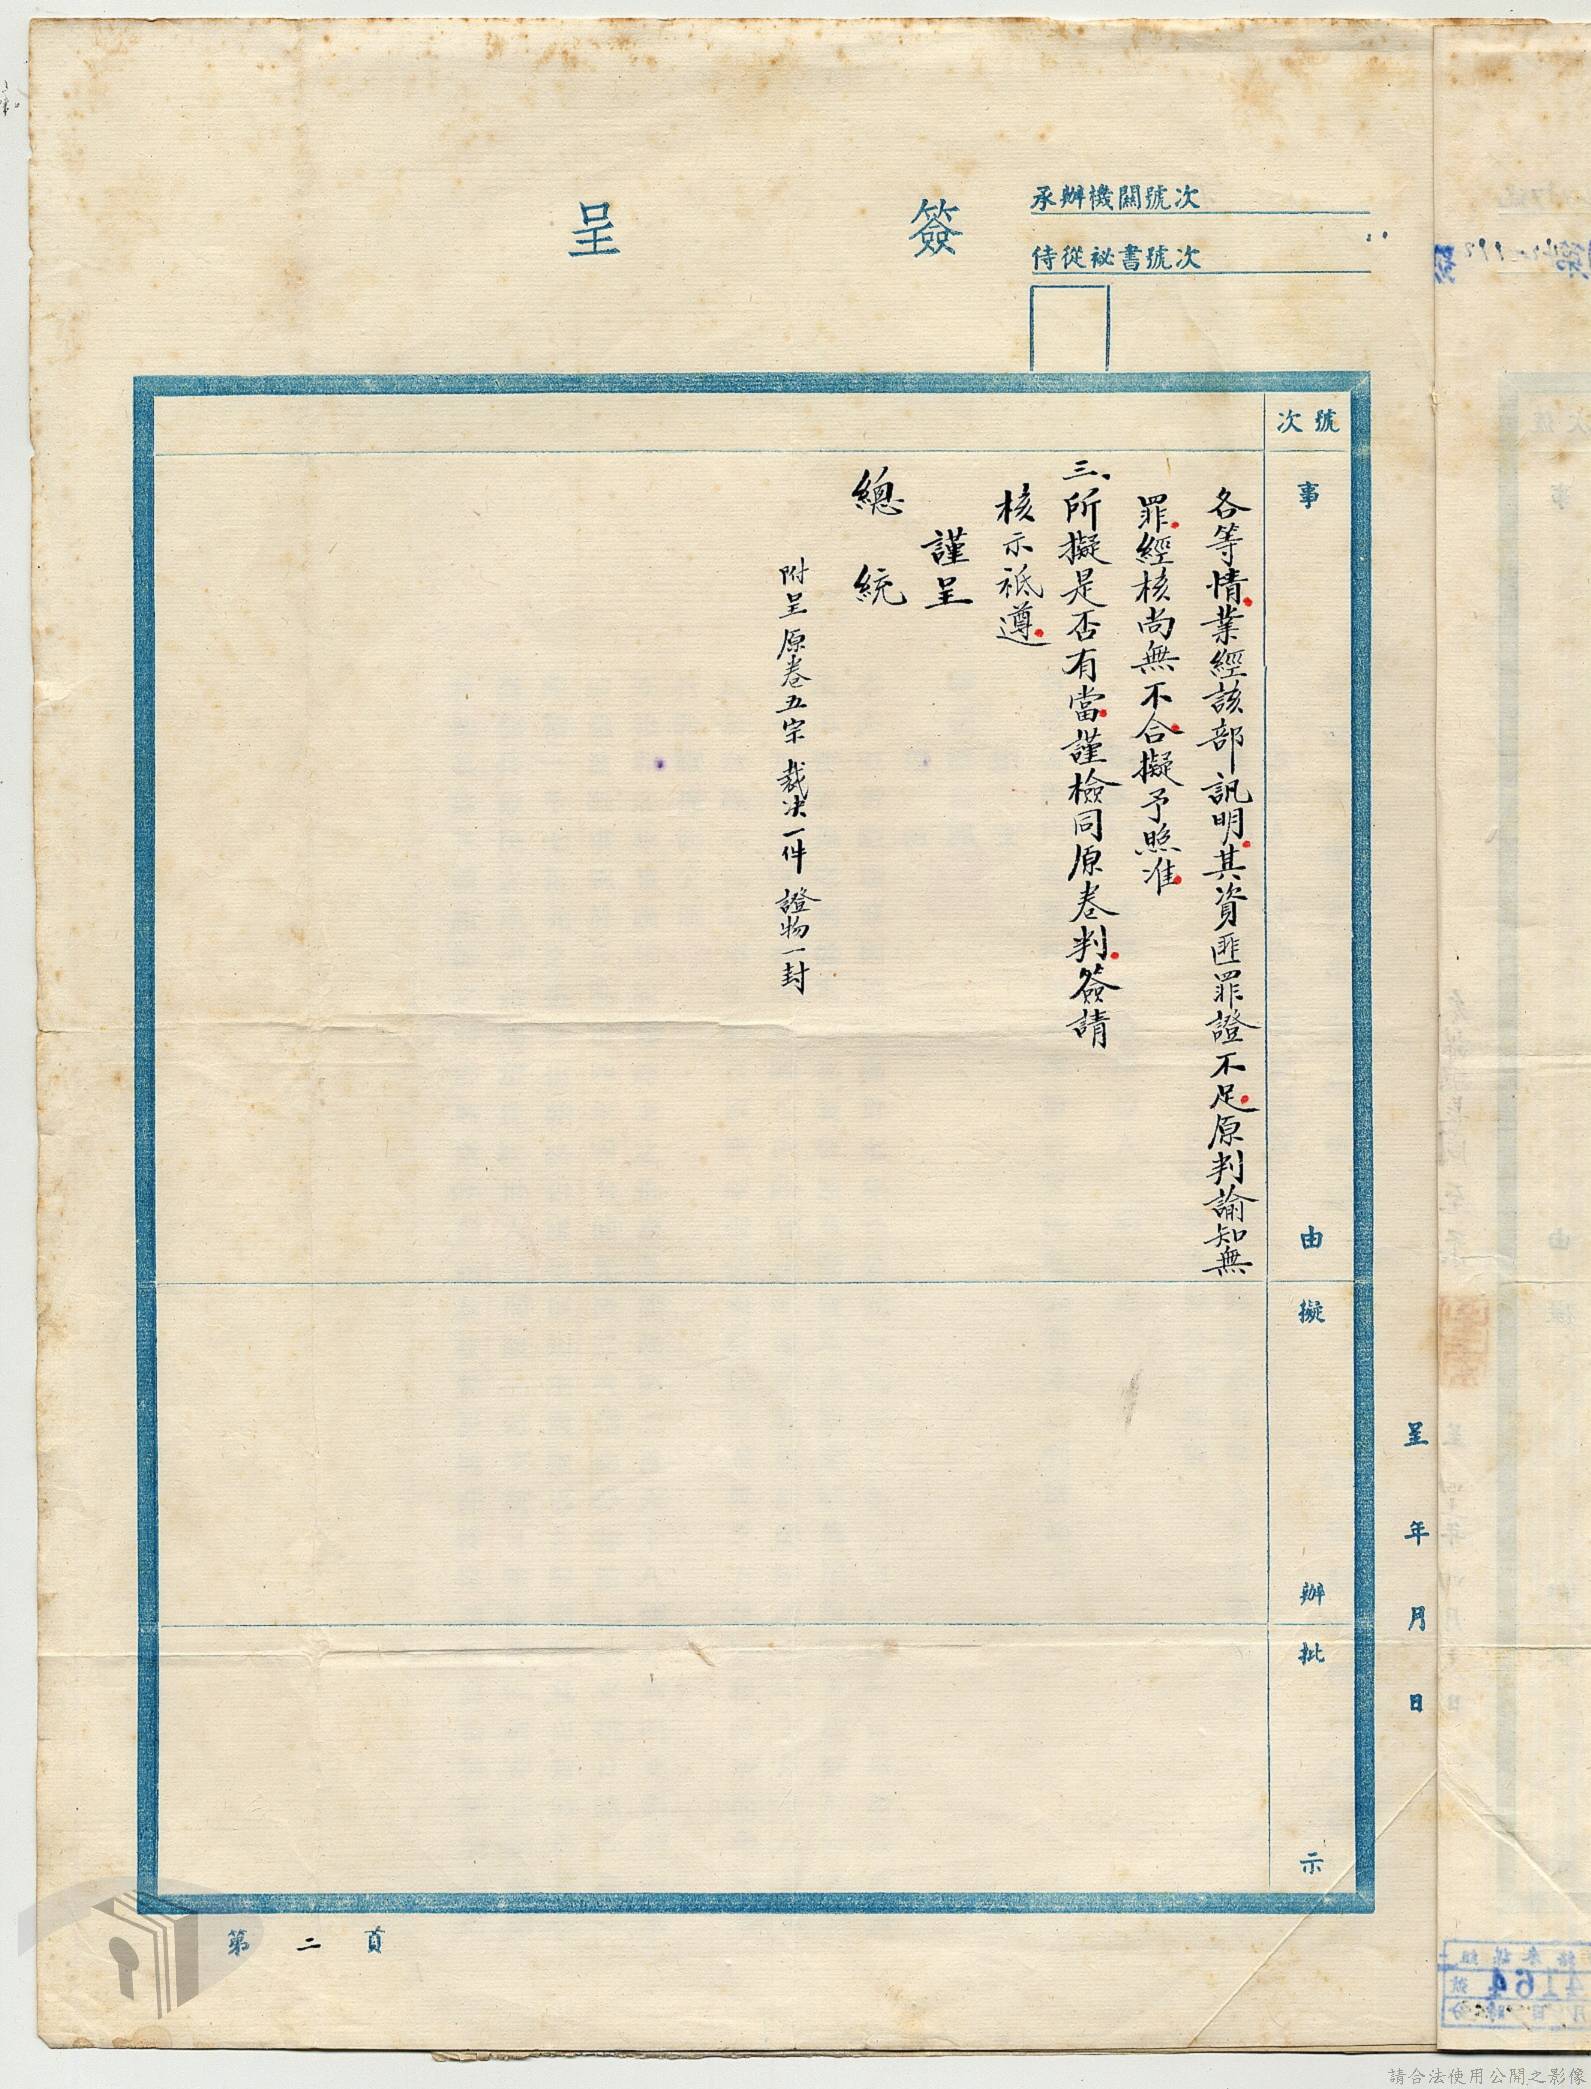 簽呈
承辦機關號次
侍從祕書號次
號次
事由
擬辦
批示
各等情業經該部訊明其資匪罪證不足原判諭知無
罪經核尚無不合擬予照准
三、所擬是否有當謹檢同原卷判簽請
核示祗遵
謹呈
總統
附呈原卷五宗裁決一件證物一封
呈 年 月 日
第二頁
4164
請合法使用公開之影像